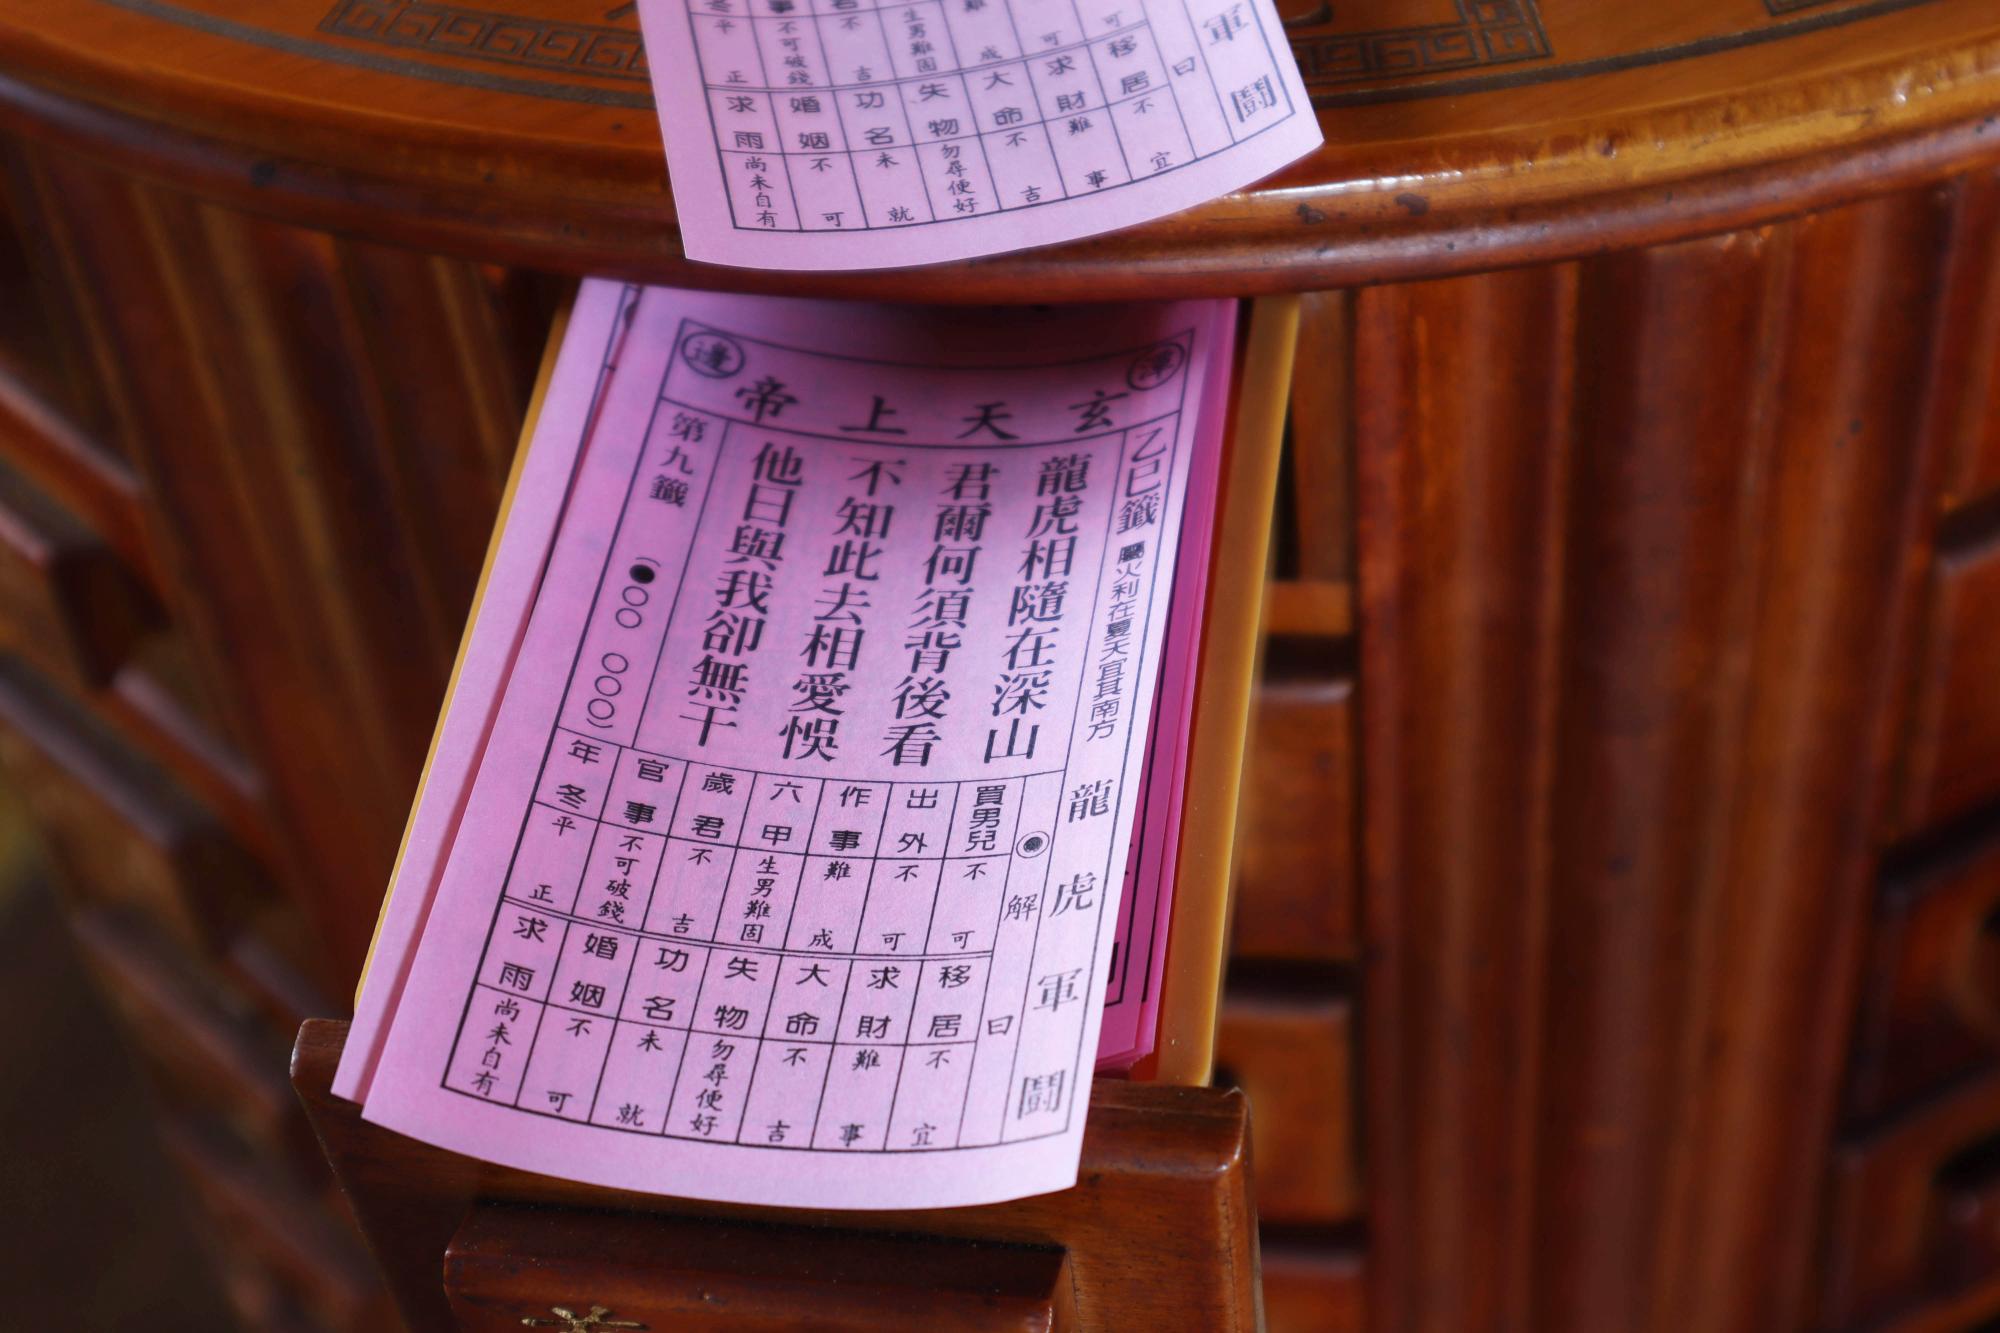 軍鬪
曰
移居 不宜
可
求財 難事
可
大命 不吉
難 成
失物 勿尋便好
生男難固
功名 未就
不吉
婚姻 不可
事 不可破錢
求雨 尚未自有
冬 平正
潭邊
玄天上帝
乙巳籤 屬火利在夏天宜其南方 龍虎軍鬪
龍虎相隨在深山
君爾何須背後看
不知此去相愛悞
他日與我卻無干
第九籤 (●○○ ○○○)
解曰
買男兒 不可
出外 不可
作事 難成
六甲 生男難固
歲君 不吉
官事 不可破錢
年冬 平正
移居 不宜
求財 難事
大命 不吉
失物 勿尋便好
功名 未就
婚姻 不可
求雨 尚未自有